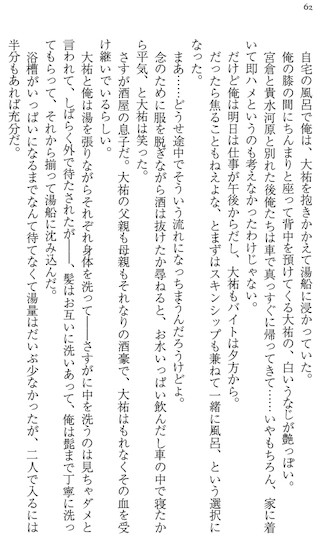 62
自宅の風呂で俺は、大祐を抱きかかえて湯船に浸かっていた。
俺の膝の間にちんまりと座って背中を預けてくる大祐の、白いうなじが艶っぽい。
宮倉と貴水河原と別れた後俺たちは車で真っすぐに帰ってきて……いやもちろん、家に着
いて即ハメというのも考えなかったわけじゃない。
だけど俺は明日は仕事が午後からだし、大祐もバイトは夕方から。
だったら焦ることもねえよな、とまずはスキンシップも兼ねて一緒に風呂、という選択に
なった。
まあ…どうせ途中でそういう流れになっちまうんだろうけどよ。
念のために服を脱ぎながら酒は抜けたか尋ねると、お水いっぱい飲んだし車の中で寝たか
ら平気、と大祐は笑った。
さすが酒屋の息子だ。大祐の父親も母親もそれなりの酒豪で、大祐はもれなくその血を受
け継いでいるらしい。
大祐と俺は湯を張りながらそれぞれ身体を洗って――さすがに中を洗うのは見ちゃダメと
言われて、しばらく外で待たされたが――、髪はお互いに洗いあって、俺は髭まで丁寧に洗っ
てもらって、それから揃って湯船に沈み込んだ。
浴槽がいっぱいになるまでなんて待てなくて湯量はだいぶ少なかったが、二人で入るには
半分もあれば充分だ。